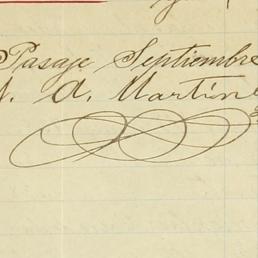 Pasaje Septiembre
A. Martin